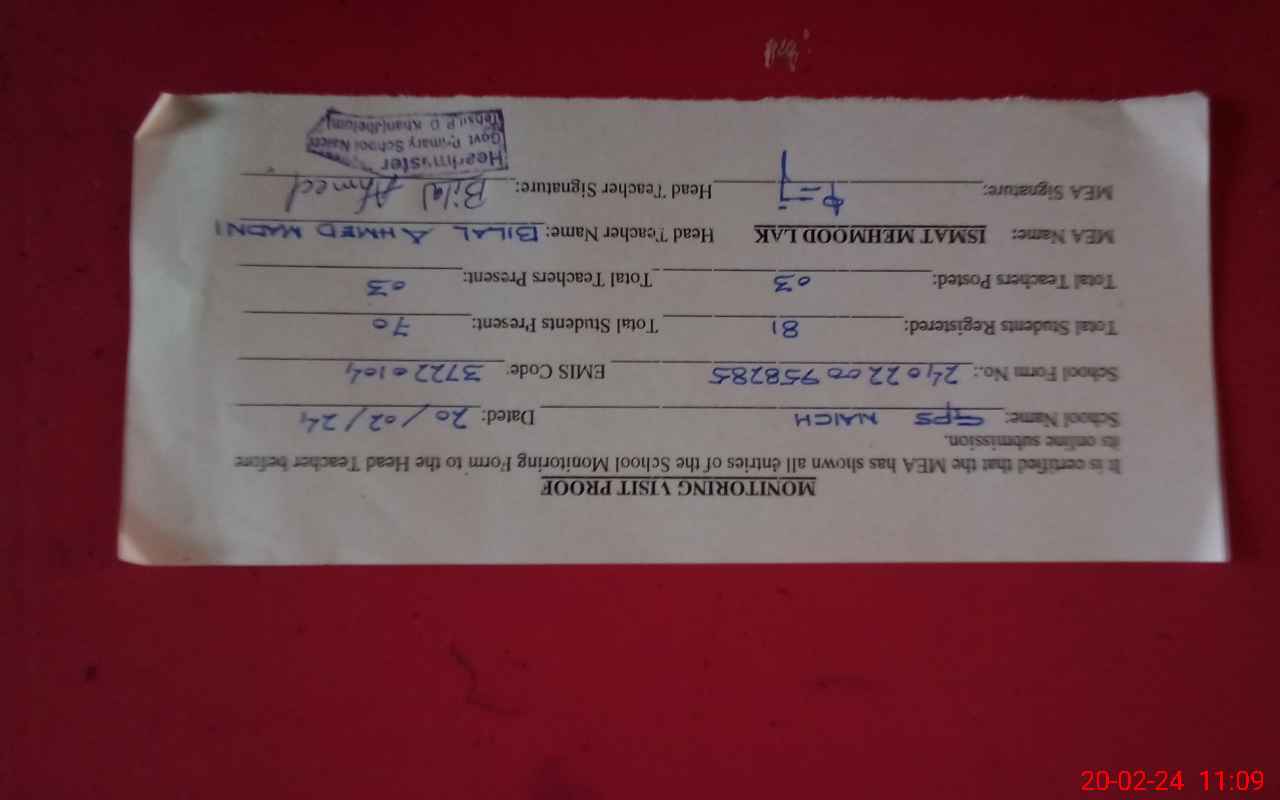 MONITORING VISIT PROOF
It is certified that the MEA has shown all entries of the School Monitoring Form to the Head Teacher before
its online submission.
School Name: GPS NAICH Dated: 20/02/24
School Form No.: 2402200958285 EMIS Code: 37220104
Total Students Registered: 81 Total Students Present: 70
Total Teachers Posted: 03 Total Teachers Present: 03
MEA Name: ISMAT MEHMOOD LAK Head Teacher Name: BILAL AHMED MADNI
MEA Signature: Head Teacher Signature: Bilal Ahmed
Headmaster
Govt Primary School Naich
Tehsil P.D. Khan(Jhelum)
20-02-24 11:09